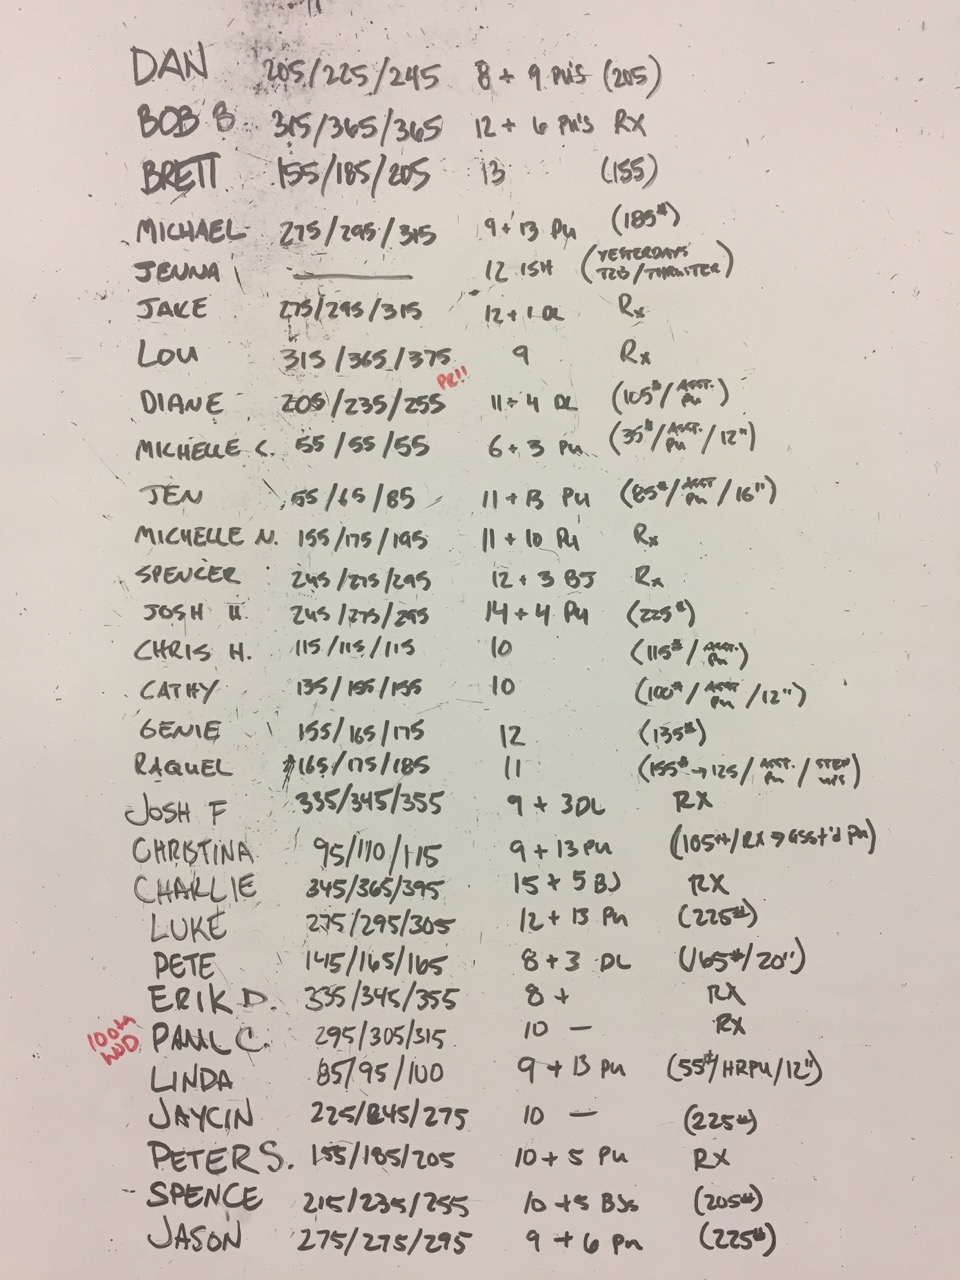 DAN 205/225/245 8 + 9 PU'S (205)
BOB B. 315/365/365 12 + 6 PU'S RX
BRETT 155/185/205 13 (155)
MICHAEL 275/295/315 9 + 13 PU (185#)
JENNA 12 ISH (YESTERDAYS T2B/THRUSTER)
JAKE 275/295/315 12 + 1 DL Rx
LOU 315/365/375 9 Rx
PR!!
DIANE 205/235/255 11 + 4 DL (105#/ASST. PU)
MICHELLE C. 55/55/55 6 + 3 PU (35#/ASST. PU/12")
JEN 55/65/85 11 + 13 PU (85#/ASST PU/16")
MICHELLE N. 155/175/195 11 + 10 PU Rx
SPENCER 245/275/295 12 + 3 BJ Rx
JOSH 245/275/295 14 + 4 PU (225#)
CHRIS H. 115/115/115 10 (115#/ASST. PU)
CATHY 135/155/155 10 (100#/ASST PU/12")
GENIE 155/165/175 12 (135#)
RAQUEL 165/175/185 11 (155#→125/ASST. PU/STEP UPS)
JOSH F 335/345/355 9 + 3DL RX
CHRISTINA 95/110/115 9 + 13 PU (105#/RX→asst'd PU)
CHARLIE 345/365/395 15 + 5 BJ RX
LUKE 275/295/305 12 + 13 PU (225#)
PETE 145/165/165 8 + 3 DL (165#/20")
ERIK D. 335/345/355 8 + RX
100th WOD PAUL C. 295/305/315 10 — RX
LINDA 85/95/100 9 + 13 PU (55#/HRPU/12")
JAYCIN 225/245/275 10 — (225#)
PETER S. 155/185/205 10 + 5 PU RX
SPENCE 215/235/255 10 + 5 BJs (205#)
JASON 275/275/295 9 + 6 PU (225#)